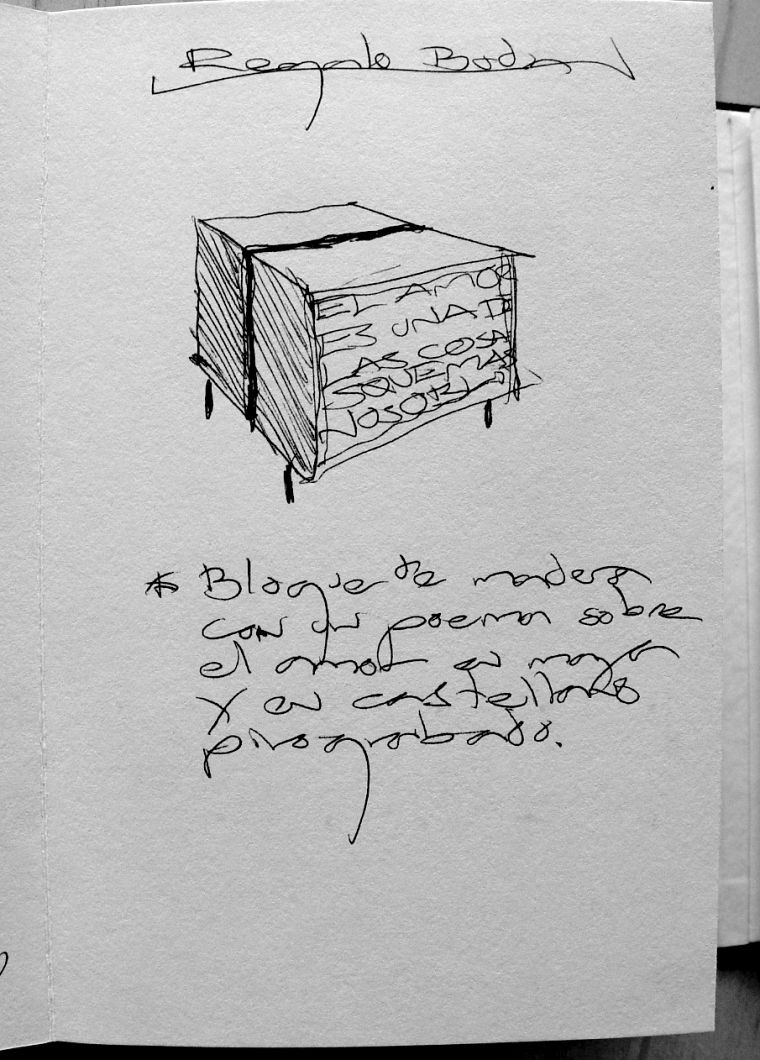 Regalo Boda
EL AMOR
ES UNA D
LAS COSA
SQUE MAS
NOSOR
* Bloque de madera
con un poema sobre
el amor en maya
y en castellano
pirograbado.